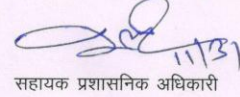 11/3/
सहायक प्रशासनिक अधिकारी